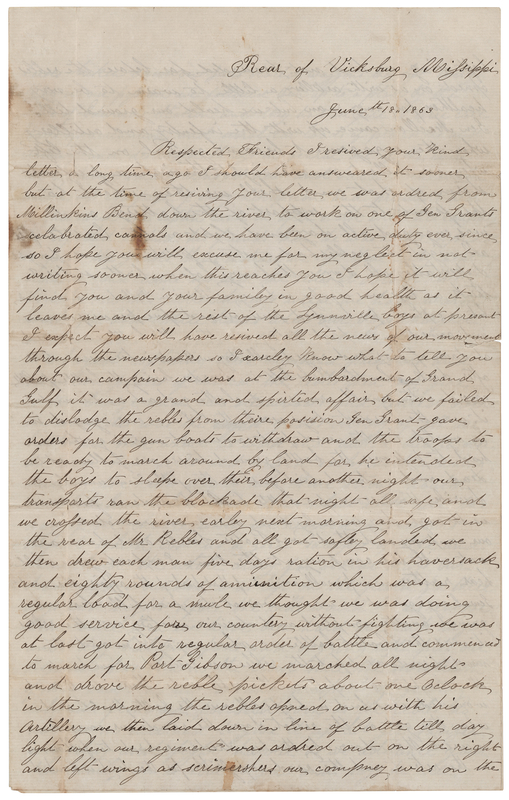 Rear of Vicksburg Missippi
June th 18. 1863
Respected Friends I resived your kind
letter a long time ago I should have answeared it sooner
but at the time of resiving your letter we was ordred from
Millinkins Bend down the river to work on one of Gen Grants
celabrated cannals and we have been on active duty ever since
so I hope you will excuse me for my neglect in not
writing sooner when this reaches you I hope it will
find you and your familey in good health as it
leaves me and the rest of the Lynnville boys at present
I expect you will have resived all the news of our movement
through the newspapers so I scarcley know what to tell you
about our campain we was at the bumbardment of Grand
Gulf it was a grand and spirted affair but we failed
to dislodge the rebles from theire posision Gen Grant gave
orders for the gun boats to withdraw and the troops to
be ready to march around by land for he intended
the boys to sleepe over their before another night our
transports ran the blockcade that night all safe and
we crossed the river earley next morning and got in
the rear of Mr Rebles and all got safley landed we
then drew each man five days ration in his haversack
and eighty rounds of aminition which was a
regular load for a mule we thought we was doing
good service fore our countery without fighting we was
at last got into regular order of battle and commencd
to march for Port Gibson we marched all night
and drove the reble pickets about one Oclock
in the morning the rebles opned on us with his
Artillery we then laid down in line of battle till day
light when our regiment was ordred out on the right
and left wings as scrimershers our compney was on the